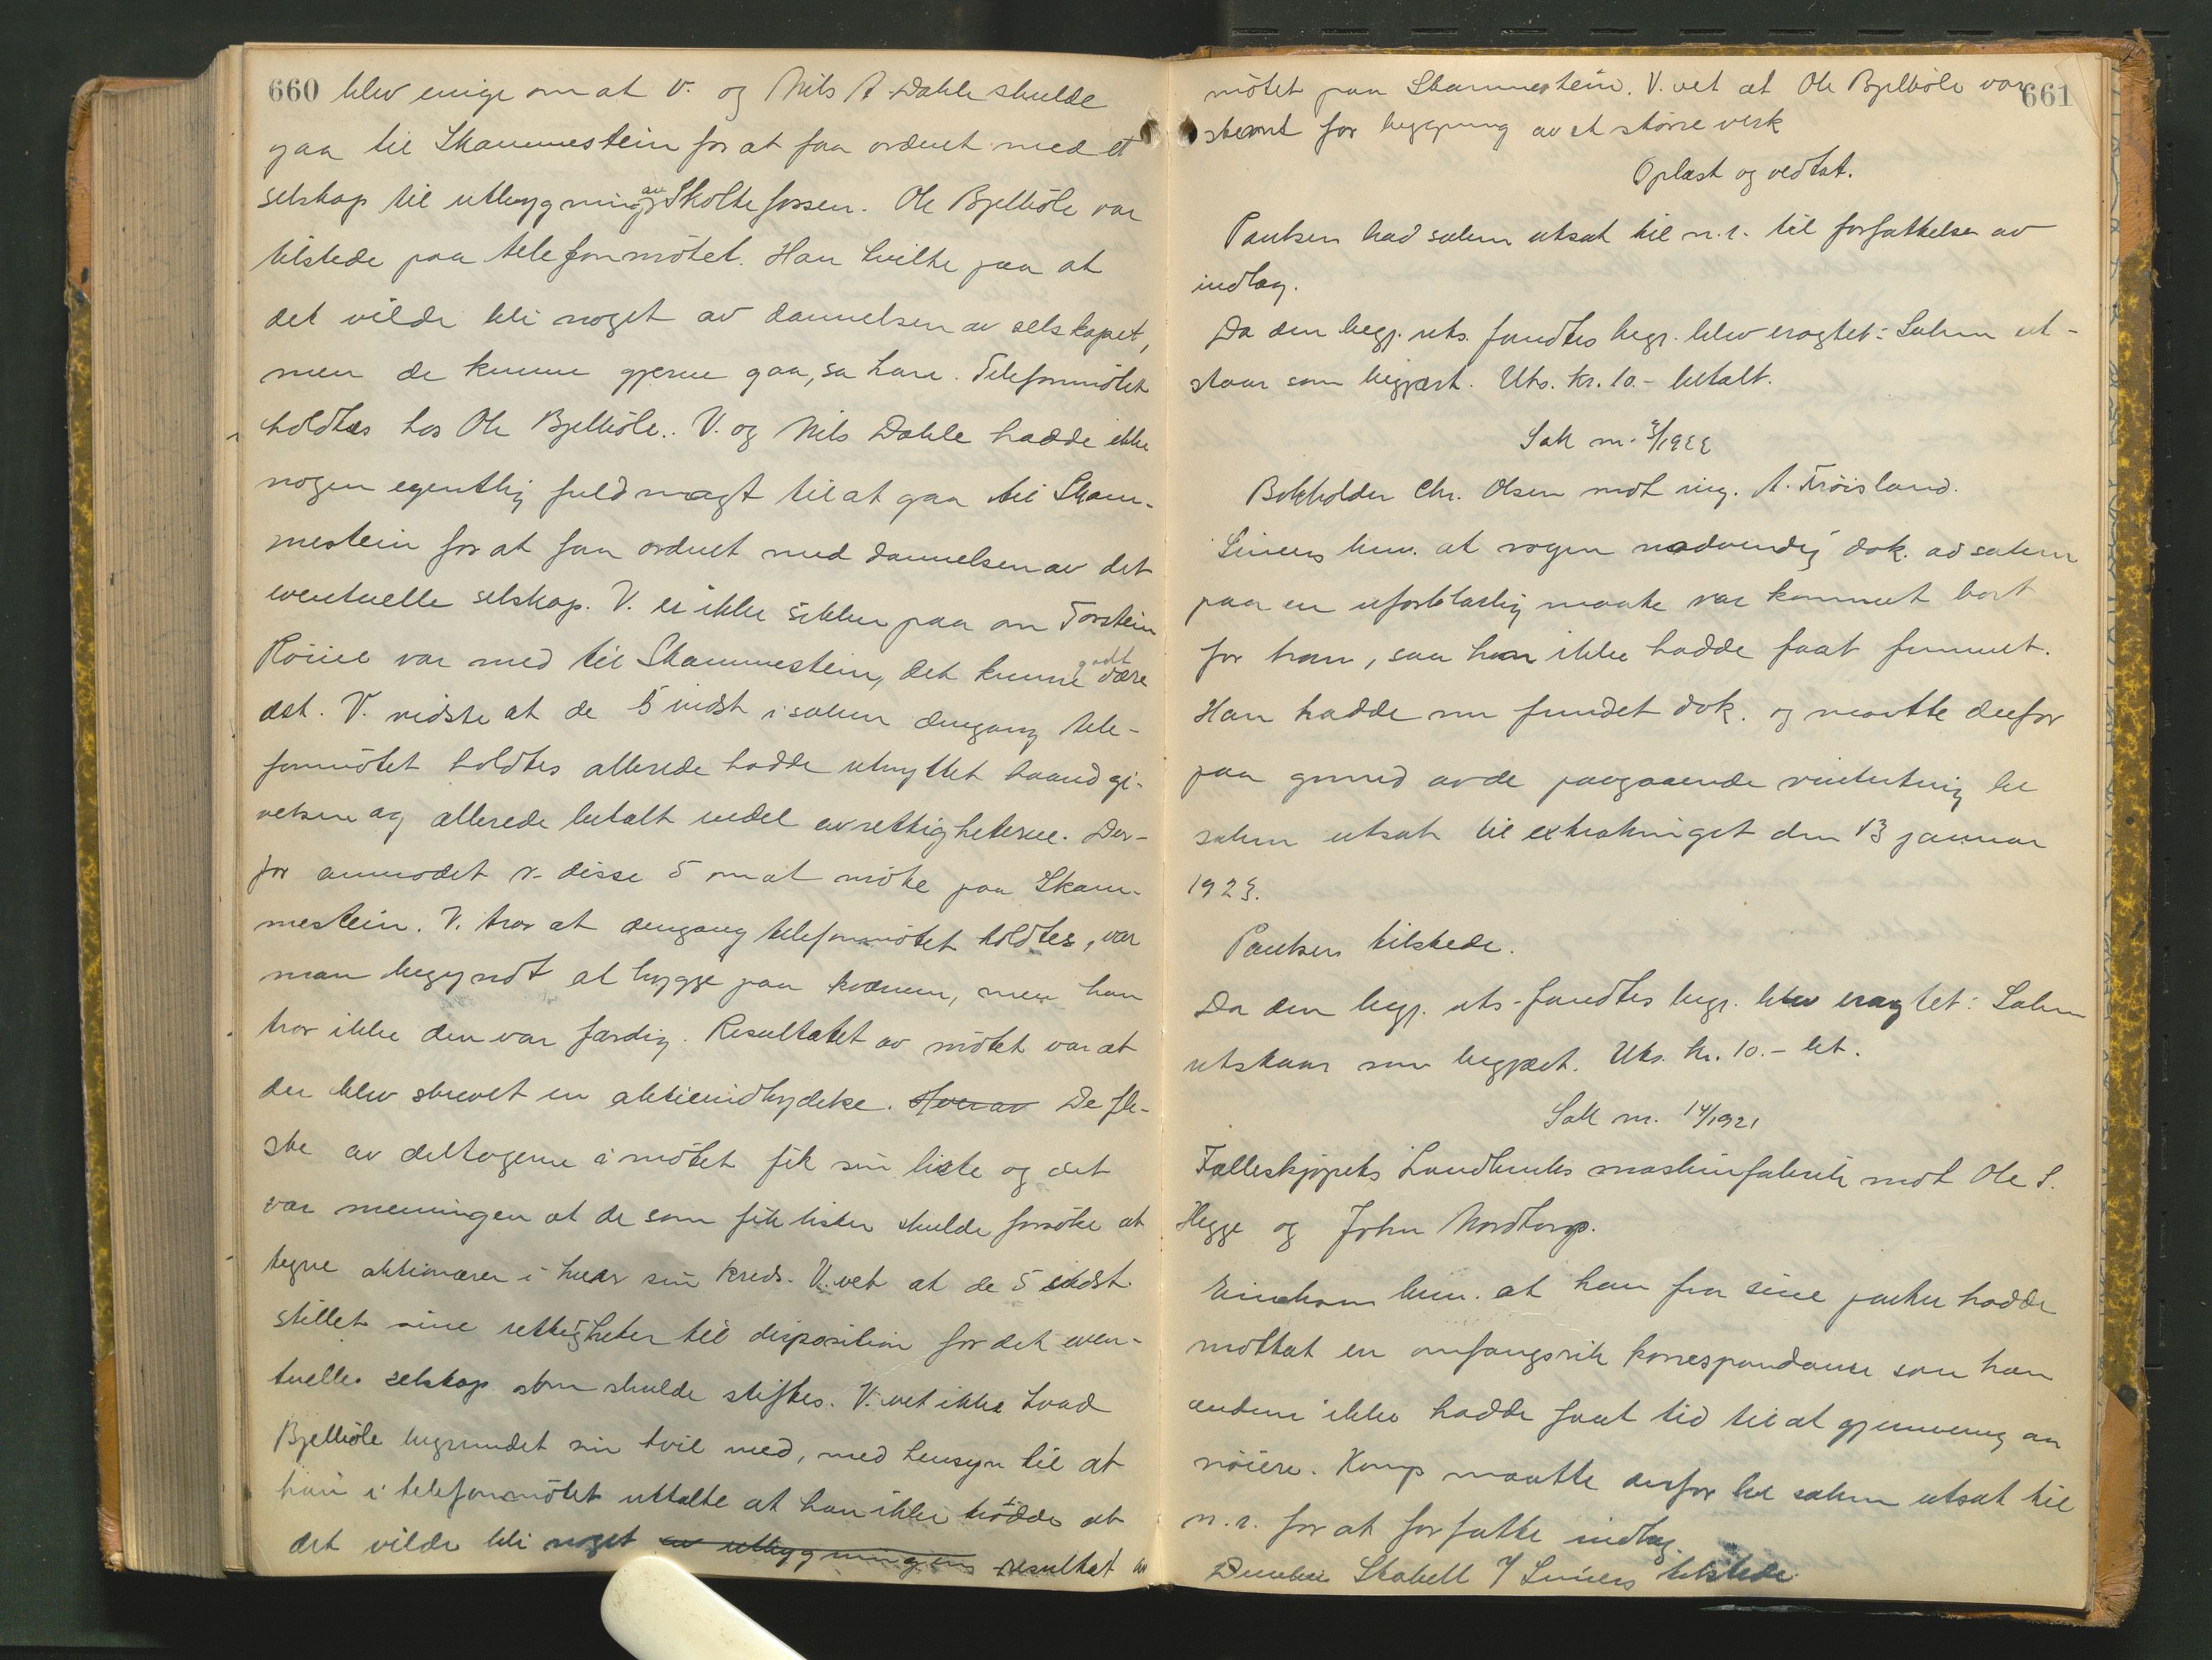 660 blev enige om at V. og Nils A. Dahle skulde
gaa til Skammestein for at faa ordnet med et
selskap til utbygning av Skoltefossen. Ole Bjelböle var
tilstede paa telefonmötet. Han tvilte paa at
det vilde bli noget av dannelsen av selskapet,
men de kunne gjerne gaa, sa han. Telefonmötet
holdtes hos Ole Bjelböle. V. og Nils Dahle hadde ikke
nogen egentlig fuldmagt til at gaa til Skam-
mestein for at faa ordnet med dannelsen av det
eventuelle selskap. V. er ikke sikker paa om Torstein
var med til Skammestein, det kunne godt være
det. V. vidste at de 5 indst. i saken dengang tele-
fonmötet holdtes allerede hadde utnyttet haandgi-
velsen og allerede betalt endel av rettigheterne. Der-
for anmodet v. disse 5 om at möte paa Skam-
mestein. V. tror at dengang telefonmötet holdtes, var
man begyndt at bygge paa kværnen, men han
tror ikke den var færdig. Resultatet av mötet var at
der blev skrevet en aktieindbydelse. Hverav De fle-
ste av deltagerne i mötet fik sin liste og det
var meningen at de som fik lister skulde forsöke at
tegne aktionærer i hver sin kreds. V. vet at de 5 indst.
stillet sine rettigheter til disposition for det even-
tuelle selskap som skulde stiftes. V. vet ikke hvad
Bjelböle begrundet sin tvil med, med hensyn til at
han i telefonmötet uttalte at han ikke trodde at
det vilde bli noget av utbygningens resultat av
mötet paa Skammestein. V. vet at Ole Bjelböle var 661
stemt for bygning av et större verk
Oplæst og vedtat.
Paulsen bad saken utsat til n.r. til forfattelse av
indlæg.
Da den begj. uts. fandtes begr. blev eragtet: Saken ut-
staar som begjært. Uts. kr. 10.- betalt.
Sak nr. 3/1922
Bokholder Chr. Olsen mot ing. A. Fröisland.
Siniers bem. at nogen nødvendig dok. ad saken
paa en uforklarlig maate var kommet bort
for ham, saa han ikke hadde faat funnet.
Han hadde nu fundet dok. og maatte derfor
paa grund av de paagaaende vintertting be
saken utsat til extratinget den 13 januar
1923.
Paulsen tilstede.
Da den begj. uts. fandtes begr. blev eragtet: Saken
utstaar som begjært. Uts. kr. 10.- bet.
Sak nr. 14/1921
Fælleskjøpets Landbruks maskinfabrik mot Ole S.
Hegge og John Nordtorp.
bem. at han fra sine parter hadde
mottat en omfangsrik korrespondance som han
endnu ikke hadde faat tid til at gjennemgaa
nöiere. Komp. maatte derfor be saken utsat til
n.r. for at forfatte indlæg.
Skabell Siniers tilstede.